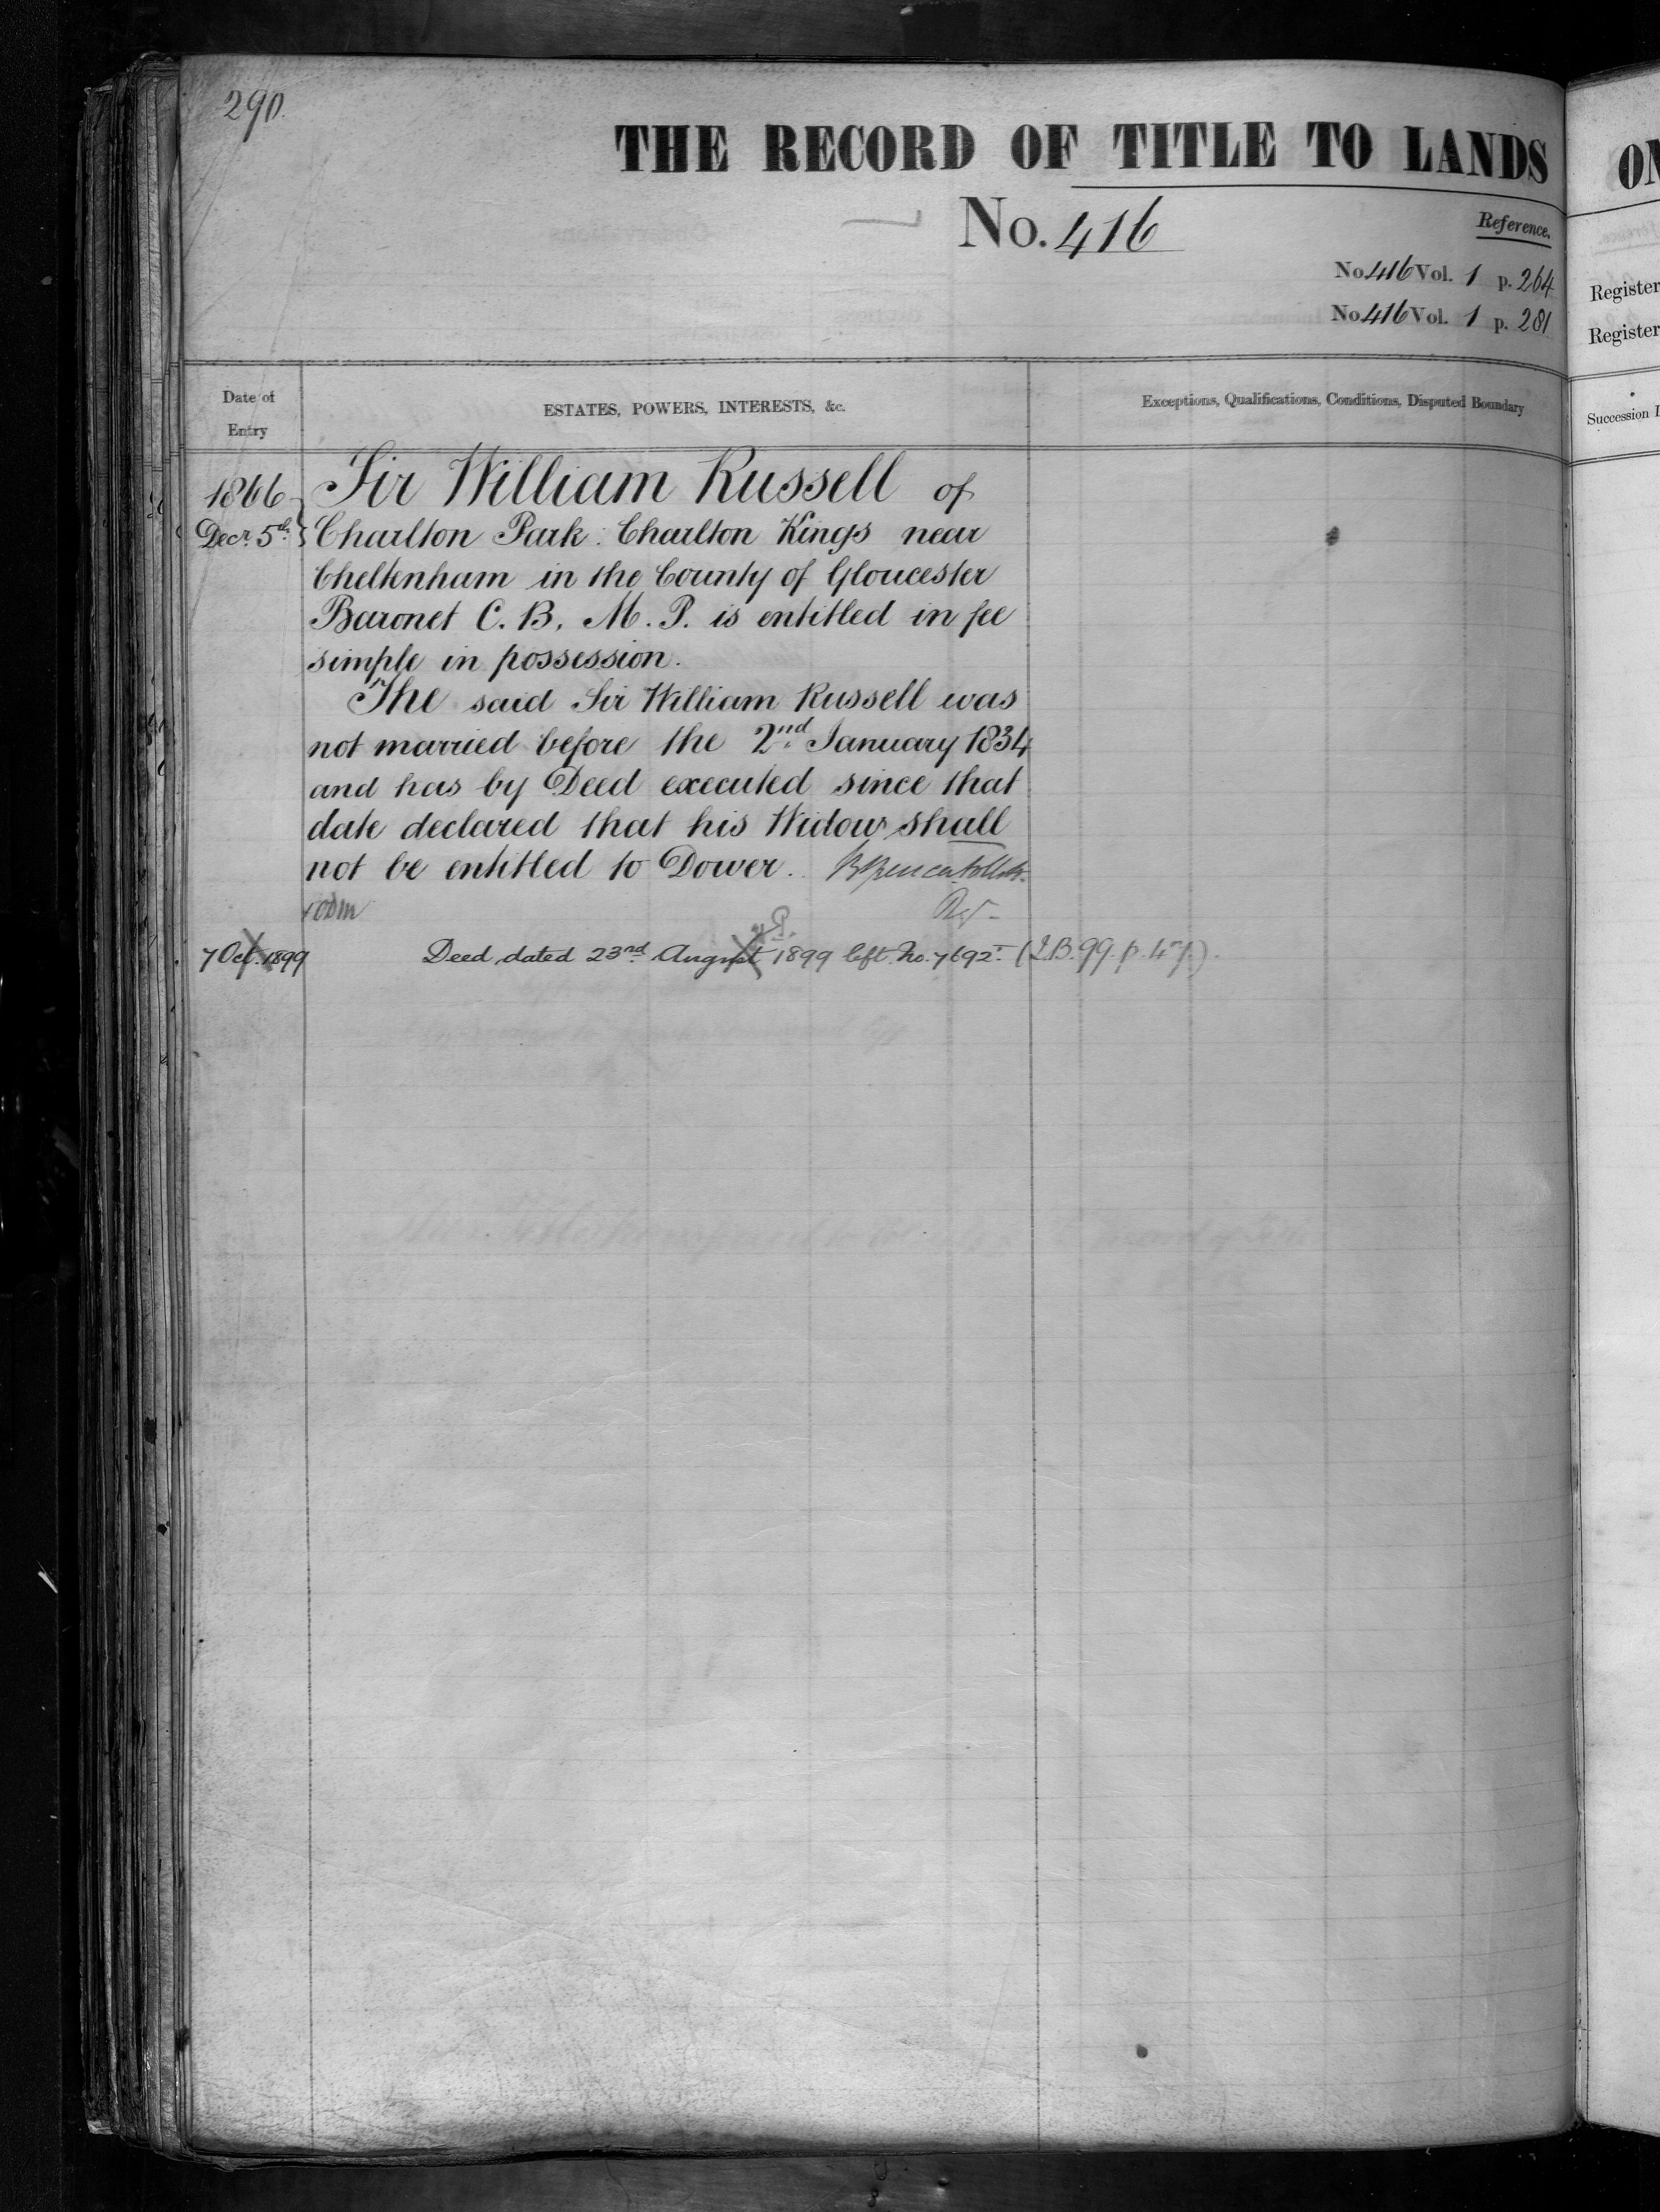 290.
THE RECORD OF TITLE TO LANDS
No. 416
Reference.
No 416 Vol. 1 p. 264
No 416 Vol. 1 p. 281
Date of Entry
ESTATES, POWERS, INTERESTS, &c.
Exceptions, Qualifications, Conditions, Disputed Boundary
1866 Sir William Russell of
Decr. 5th. Charlton Park. Charlton Kings near
Cheltenham in the County of Gloucester
Baronet C. B, M. P. is entitled in fee
simple in possession.
The said Sir William Russell was
not married before the 2nd January 1834
and has by Deed executed since that
date declared that his Widow shall
not be entitled to Dower.
7 Oct. 1899 Deed dated 23rd August 1899 left No. 7692
Register
Register
Succession